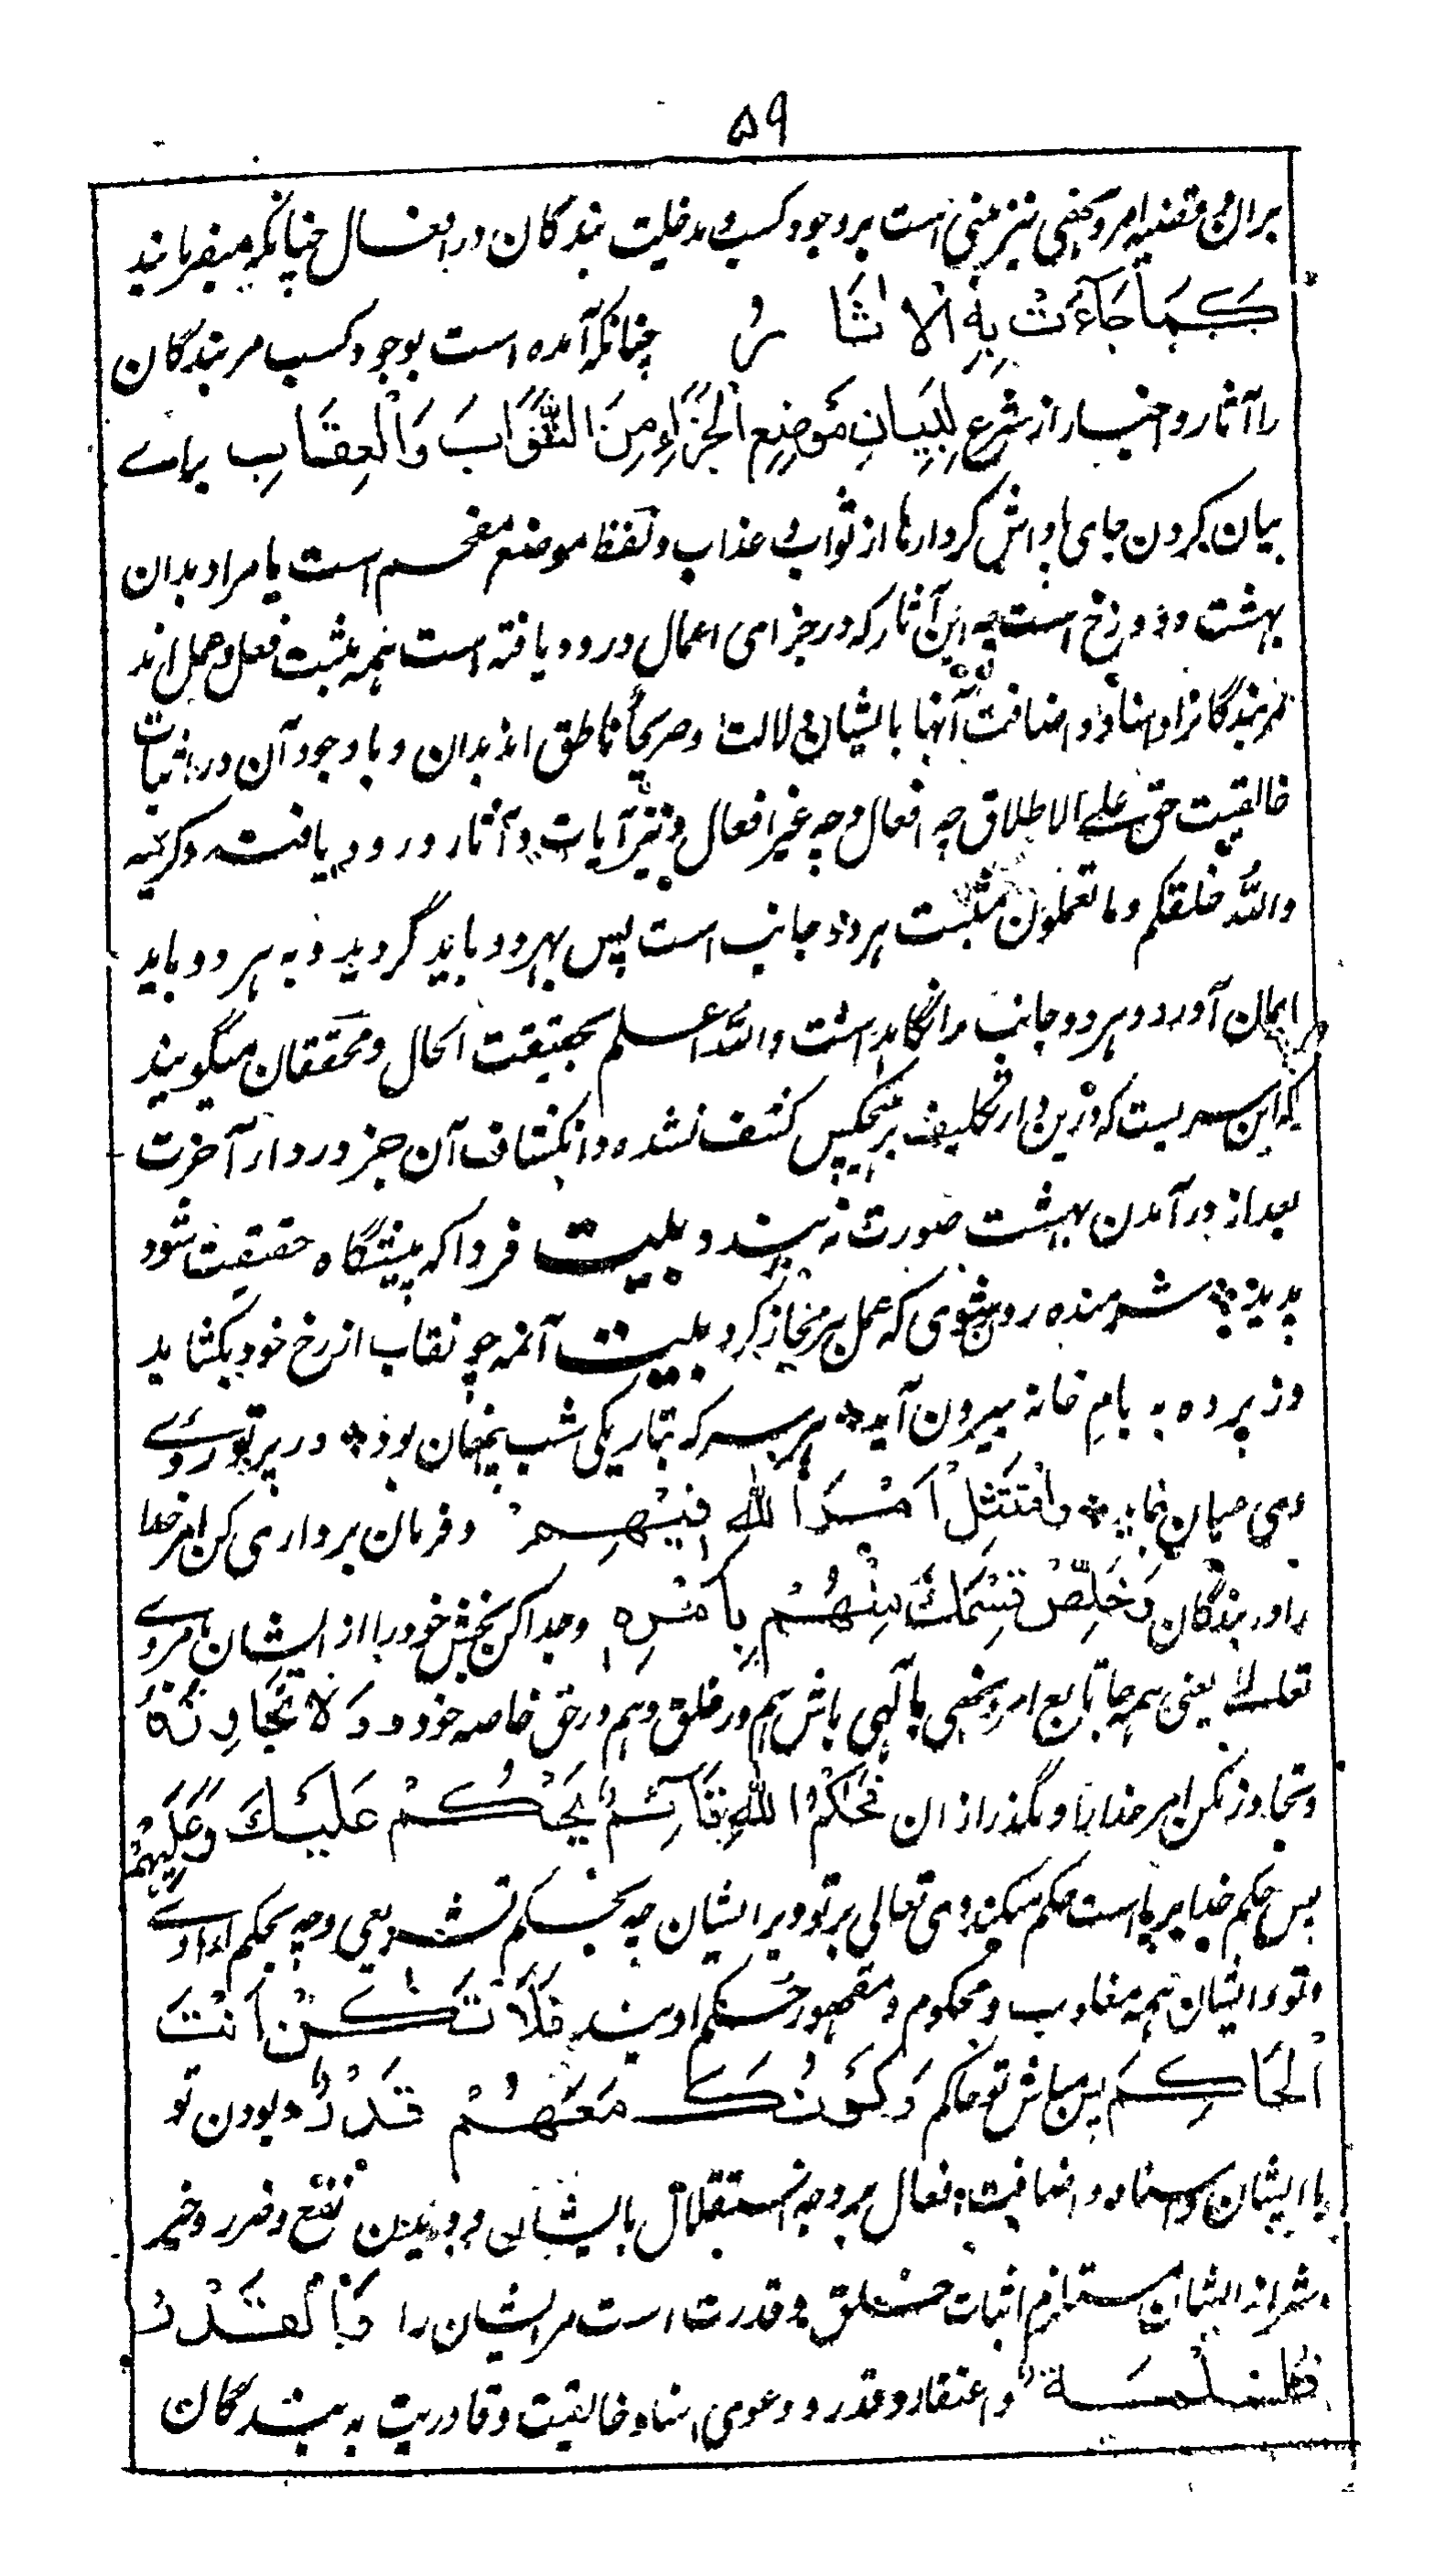 ۵۹
بران و قضیه امر و نهی نیز مبنی است بر وجود کسب و مدخلیت بندگان در افعال چنانکه میفرمایند
كَمَا جَاءَتْ بِهِ الْاٰثَارُ چنانکه آمده است بوجود کسب مر بندگان
را آثار و اخبار از شرع لِبَيَانِ مَوْضِعِ الْجَزَاءِ مِنَ الثَّوَابِ وَالْعِقَابِ برای
بیان کردن جای پاداش کردارها از ثواب و عذاب و لفظ موضع مفخم است یا مراد بدان
بهشت و دوزخ است چه این آثار که در جزای اعمال ورود یافته است همه مثبت فعل و عمل اند
مر بندگانرا و اسناد و اضافت آنها بایشان دلالت و صریحاً ناطق اند بدان و با وجود آن در اثبات
خالقیت حق علی الاطلاق چه افعال و چه غیر افعال و نیز آیات و آثار ورود یافت و کریمه
والله خلقکم وما تعملون مثبت هر دو جانب است پس بهر دو باید گروید و به هر دو باید
ایمان آورد و هر دو جانب را نگاه داشت والله اعلم بحقیقت الحال و محققان میگویند
که این سریست که درین دار تکلیف بر هیچکس کشف نشده و انکشاف آن جز در دار آخرت
بعد از درآمدن بهشت صورت نه بندد بیت فردا که پیشگاه حقیقت شود
پدید شرمنده رهروی که عمل بر مجاز کرد بیت آنمه چو نقاب از رخ خود بکشاید
وز پرده به بام خانه بیرون آید هر سر که بتاریکی شب پنهان بود در پرتو روی
وی عیان نماید وَامْتَثِلْ اَمْرَ اللهِ فِيْهِمْ و فرمان برداری کن امر خدا
را در بندگان وَخَلِّصْ قِسْمَكَ مِنْهُمْ بِاَمْرِهٖ و جدا کن بخش خود را از ایشان بامر وی
تعالی یعنی همه جا تابع امر و نهی الهی باش هم در خلق و هم در حق خاصه خود وَلَا تَجَاوِزْهُ
و تجاوز مکن امر خدا را و مگذر از ان فَحُكْمُ اللهِ قَائِمٌ يَحْكُمُ عَلَيْكَ وَعَلَيْهِمْ
پس حکم خدا برپا است حکم میکند وی تعالی بر تو و بر ایشان چه بحکم تشریعی و چه بحکم ارادی
و تو و ایشان همه مغلوب و محکوم و مقهور حکم اویند فَلَا تَكُنْ اَنْتَ
الْحَاكِمَ پس مباش تو حاکم وَكَوْنُكَ مَعَهُمْ قَدَرٌ و بودن تو
با ایشان و اسناد و اضافت افعال بر وجه استقلال بایشان و دیدن نفع و ضرر و خیر
و شر از ایشان مستلزم اثبات خلق و قدرت است مر ایشان را وَالْقَدَرُ
ظُلْمَةٌ و اعتقاد و قدر و دعوی اسناد خالقیت و قادریت به بندگان